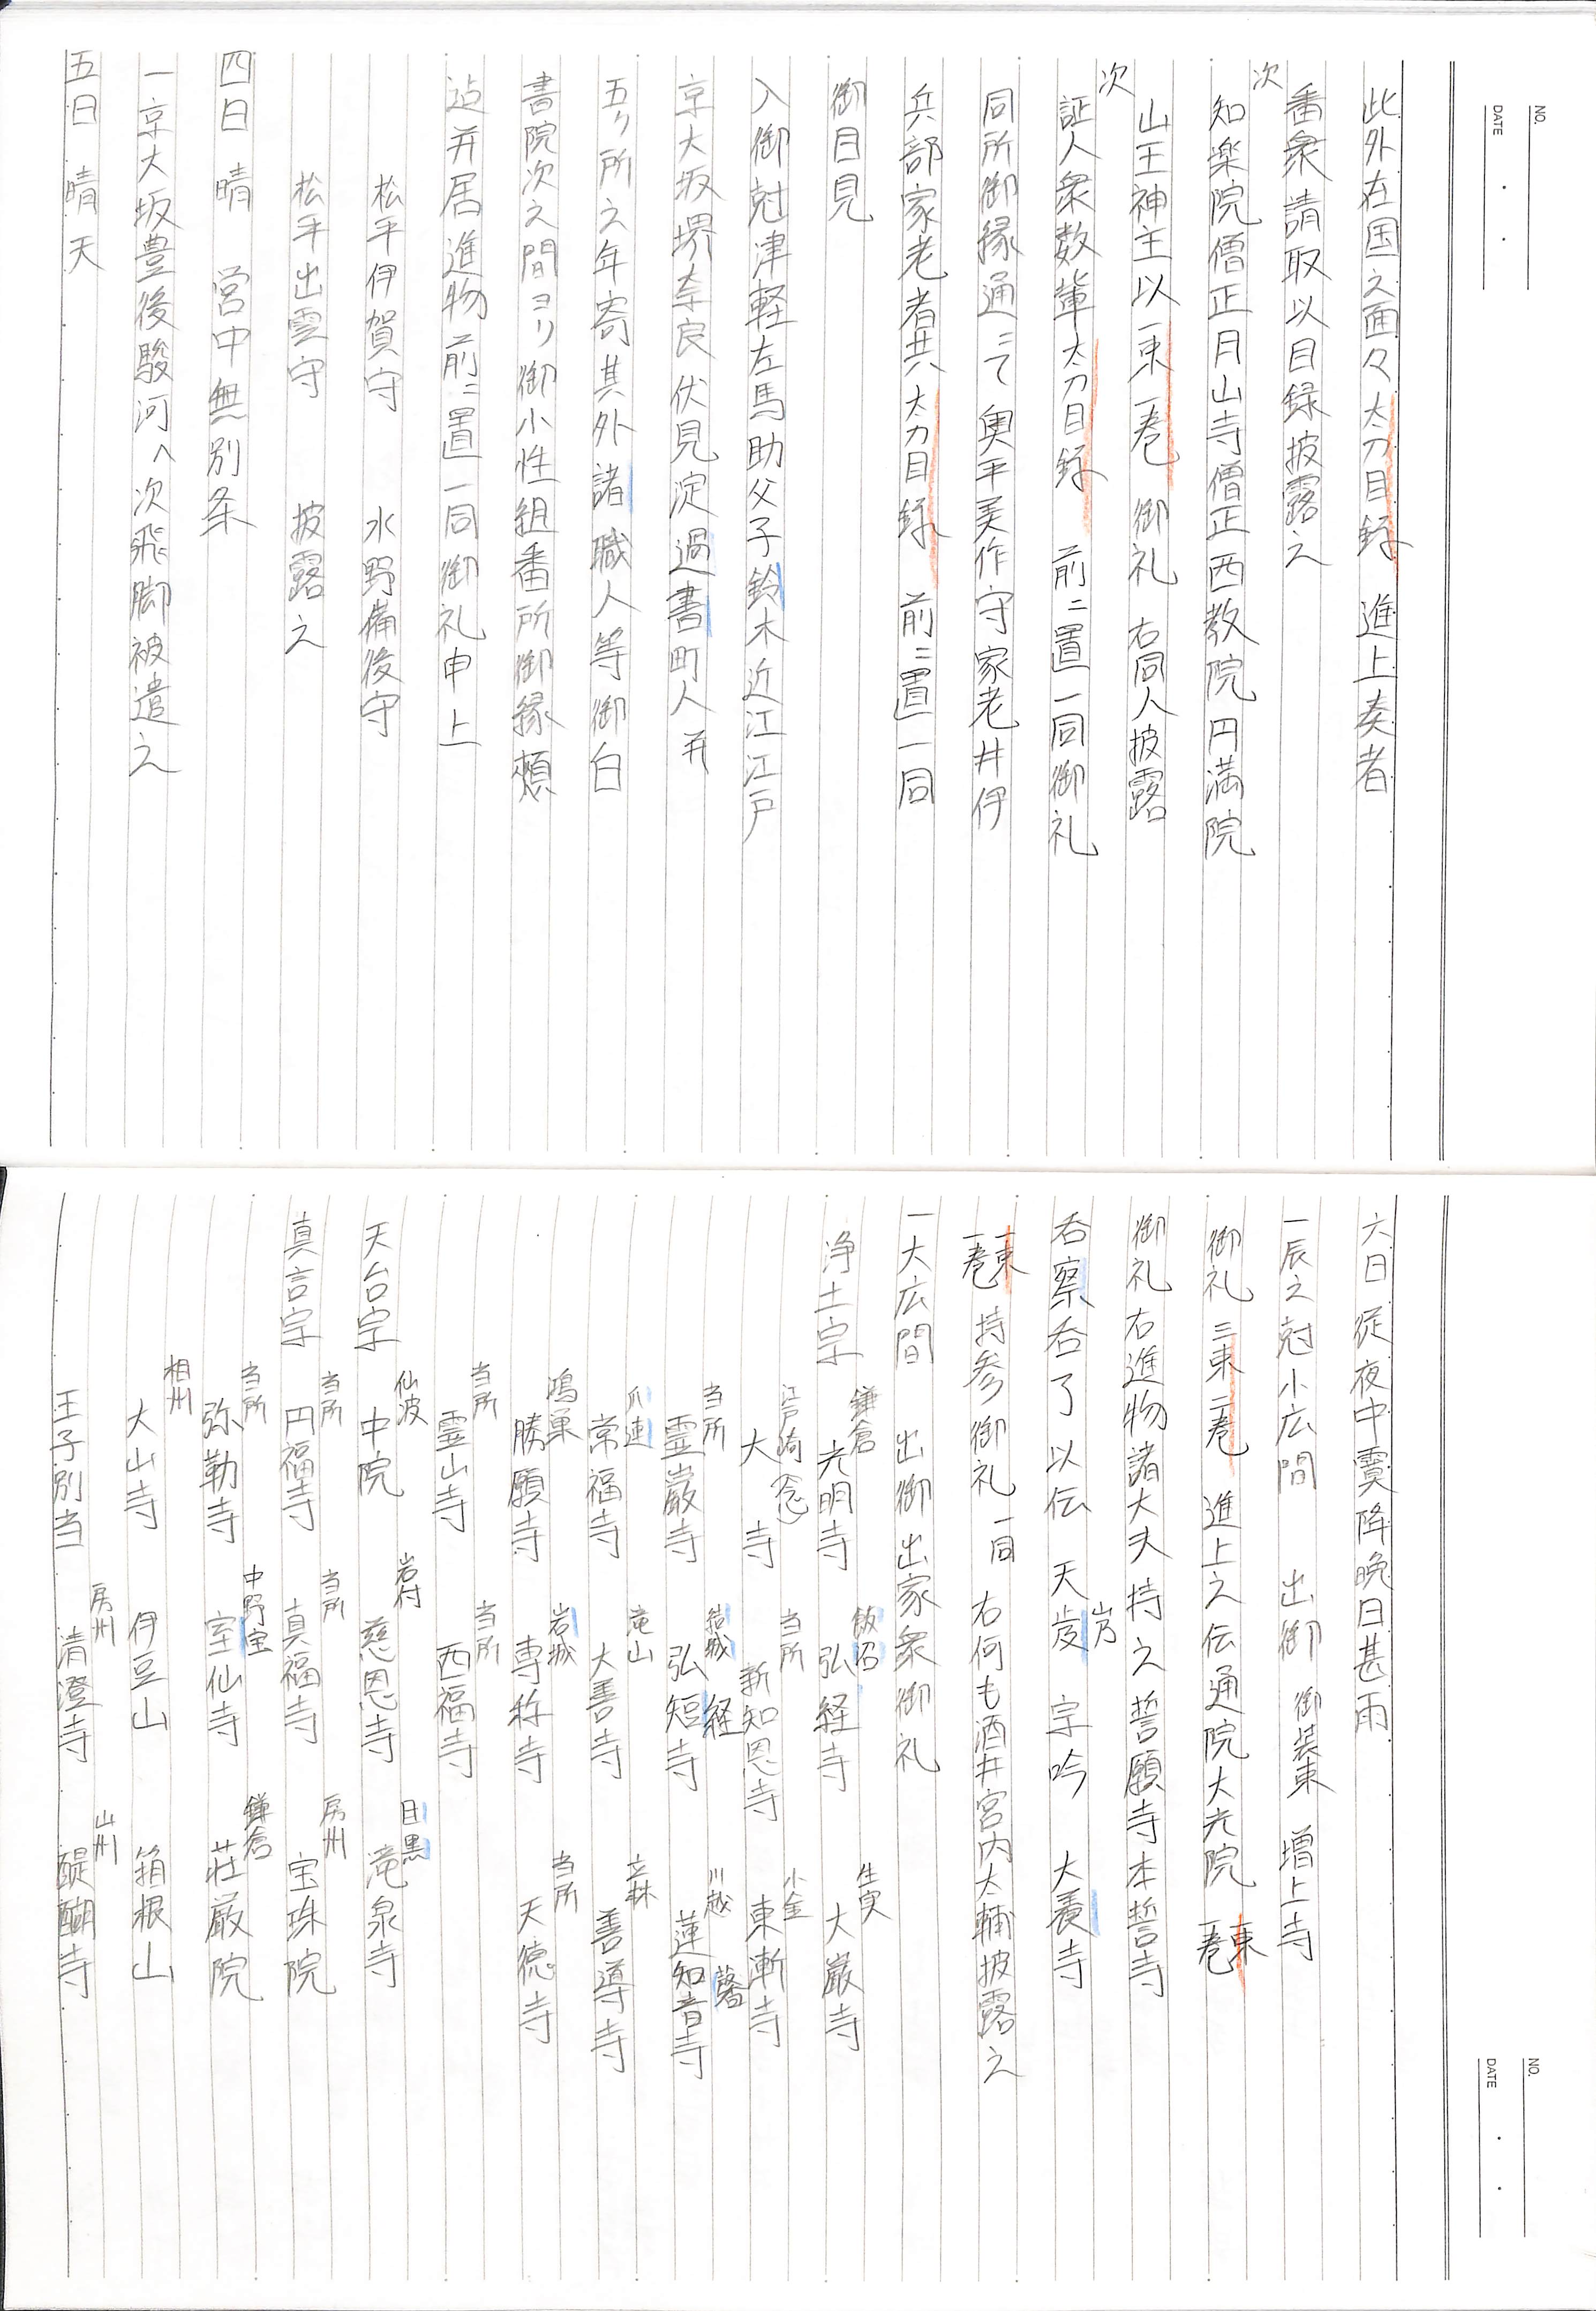 NO.
DATE
此外在国之面々太刀目録 進上奏者
番衆請取以目録披露之
次
知楽院僧正月山寺僧正西教院円満院
山王神主以一束一巻 御礼 右同人披露
次
証人衆数輩太刀目録 前ニ置一同御礼
同所御縁通ニて奥平美作守家老井伊
兵部家老者共太刀目録 前ニ置一同
御目見
入御尅津軽左馬助父子鈴木近江江戸
京大坂堺奈良伏見淀過書町人并
五り所之年寄其外諸職人等御白
書院次之間ヨリ御小性組番所御縁頬
迠并居進物前ニ置一同御礼申上
松平伊賀守 水野備後守
松平出雲守 披露之
四日 晴 営中無別条
一京大坂豊後駿河へ次飛脚被遣之
五日 晴天
NO.
DATE
六日 従夜中霙降晩日甚雨
一辰之尅小広間 出御 御装束 増上寺
御礼 三束一巻 進上之伝通院大光院 一束一巻
御礼右進物諸大夫持之誓願寺本誓寺
呑察呑了以伝 天歳 宗吟 大養寺
一束一巻 持参御礼 一同 右何も酒井宮内太輔披露之
一大広間 出御出家衆御礼
浄土宗 鎌倉 光明寺 飯沼 弘経寺 生実 大巌寺
江戸崎(念) 大 寺 当所 新知恩寺 小金 東漸寺
当所 霊巌寺 結城 弘短寺 経 川越 蓮知音寺 馨
爪連 常福寺 滝山 大善寺 立林 善導寺
鴻巣 勝願寺 岩城 専称寺 当所 天徳寺
当所 霊山寺 当所 西福寺
天台宗 仙波 中院 岩付 慈恩寺 目黒 滝泉寺
真言宗 当所 円福寺 当所 真福寺 房州 宝珠院
当所 弥勒寺 中野宝 室仙寺 鎌倉 荘厳院
相州 大山寺 伊豆山 箱根山
王子別当 房州 清澄寺 山州 醍醐寺